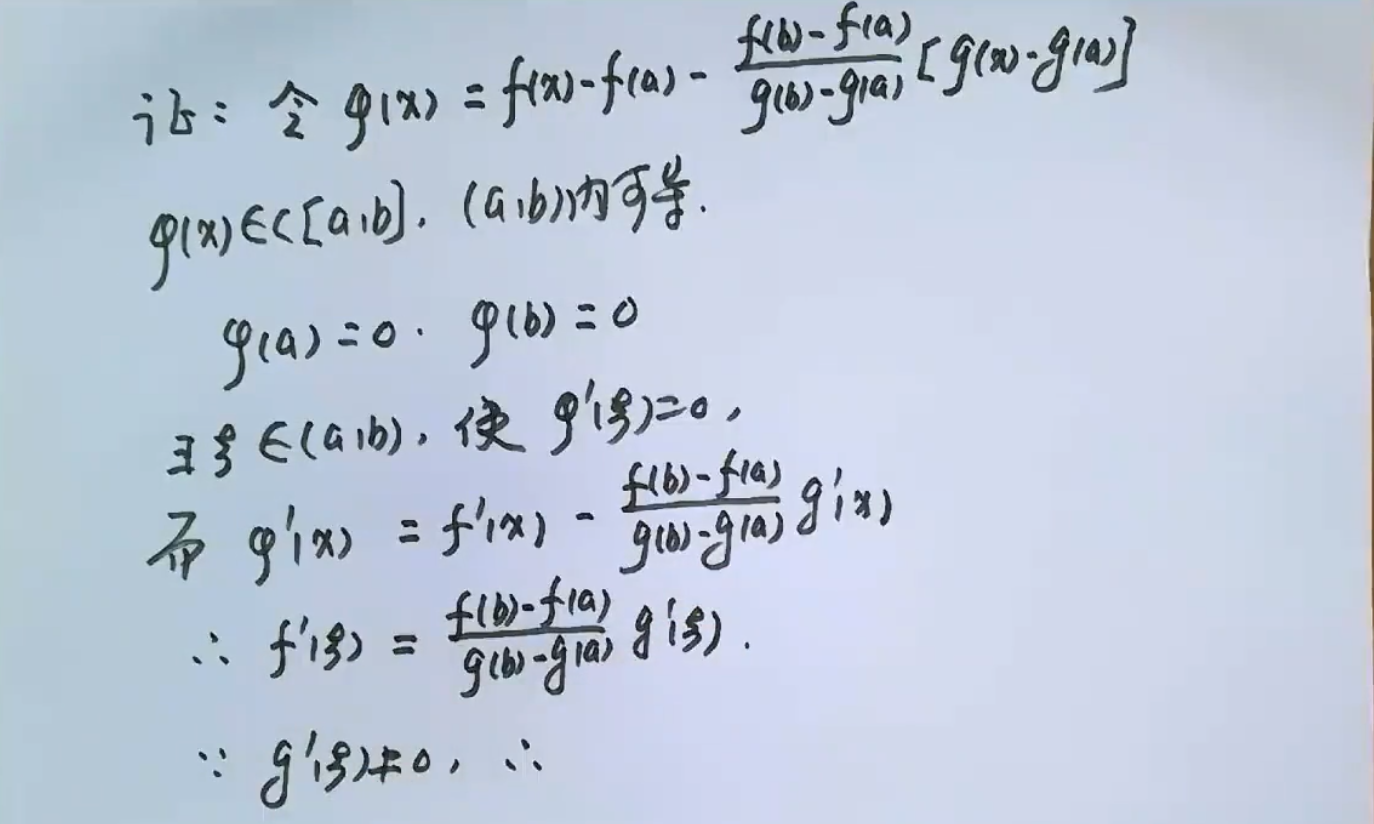 证: 令 φ(x) = f(x)-f(a) - \frac{f(b)-f(a)}{g(b)-g(a)} [g(x)-g(a)]
φ(x)∈C[a,b], (a,b)内可导.
φ(a)=0. φ(b)=0
∃ξ∈(a,b), 使 φ'(ξ)=0,
而 φ'(x) = f'(x) - \frac{f(b)-f(a)}{g(b)-g(a)} g'(x)
∴ f'(ξ) = \frac{f(b)-f(a)}{g(b)-g(a)} g'(ξ).
∵ g'(ξ)≠0, ∴